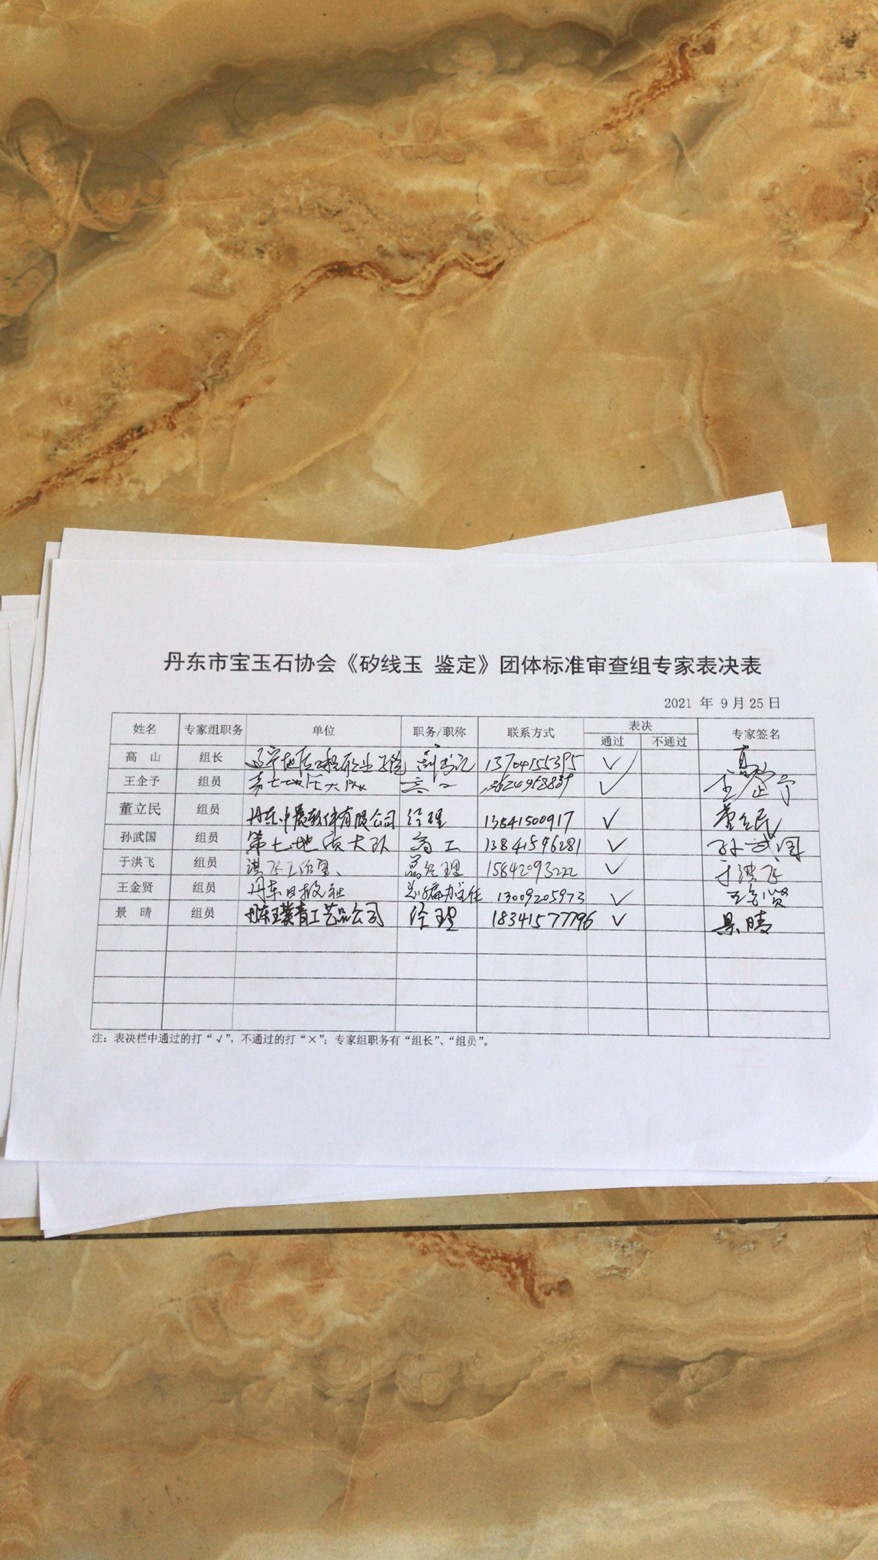 丹东市宝玉石协会《矽线玉 鉴定》团体标准审查组专家表决表
2021 年 9 月 25 日
姓名 专家组职务 单位 职务/职称 联系方式 表决 专家签名
通过 不通过
高 山 组长 13704155395 √
王企予 组员 √
董立民 组员 经理 13841500917 √ 董立民
孙武国 组员 第七地质大队 高工 13841596281 √ 孙武国
于洪飞 组员 总经理 15842093222 √ 于洪飞
王金贤 组员 丹东日报社 13009205973 √ 王金贤
景 晴 组员 经理 18341577796 √ 景晴
注：表决栏中通过的打“√”，不通过的打“×”；专家组职务有“组长”、“组员”。